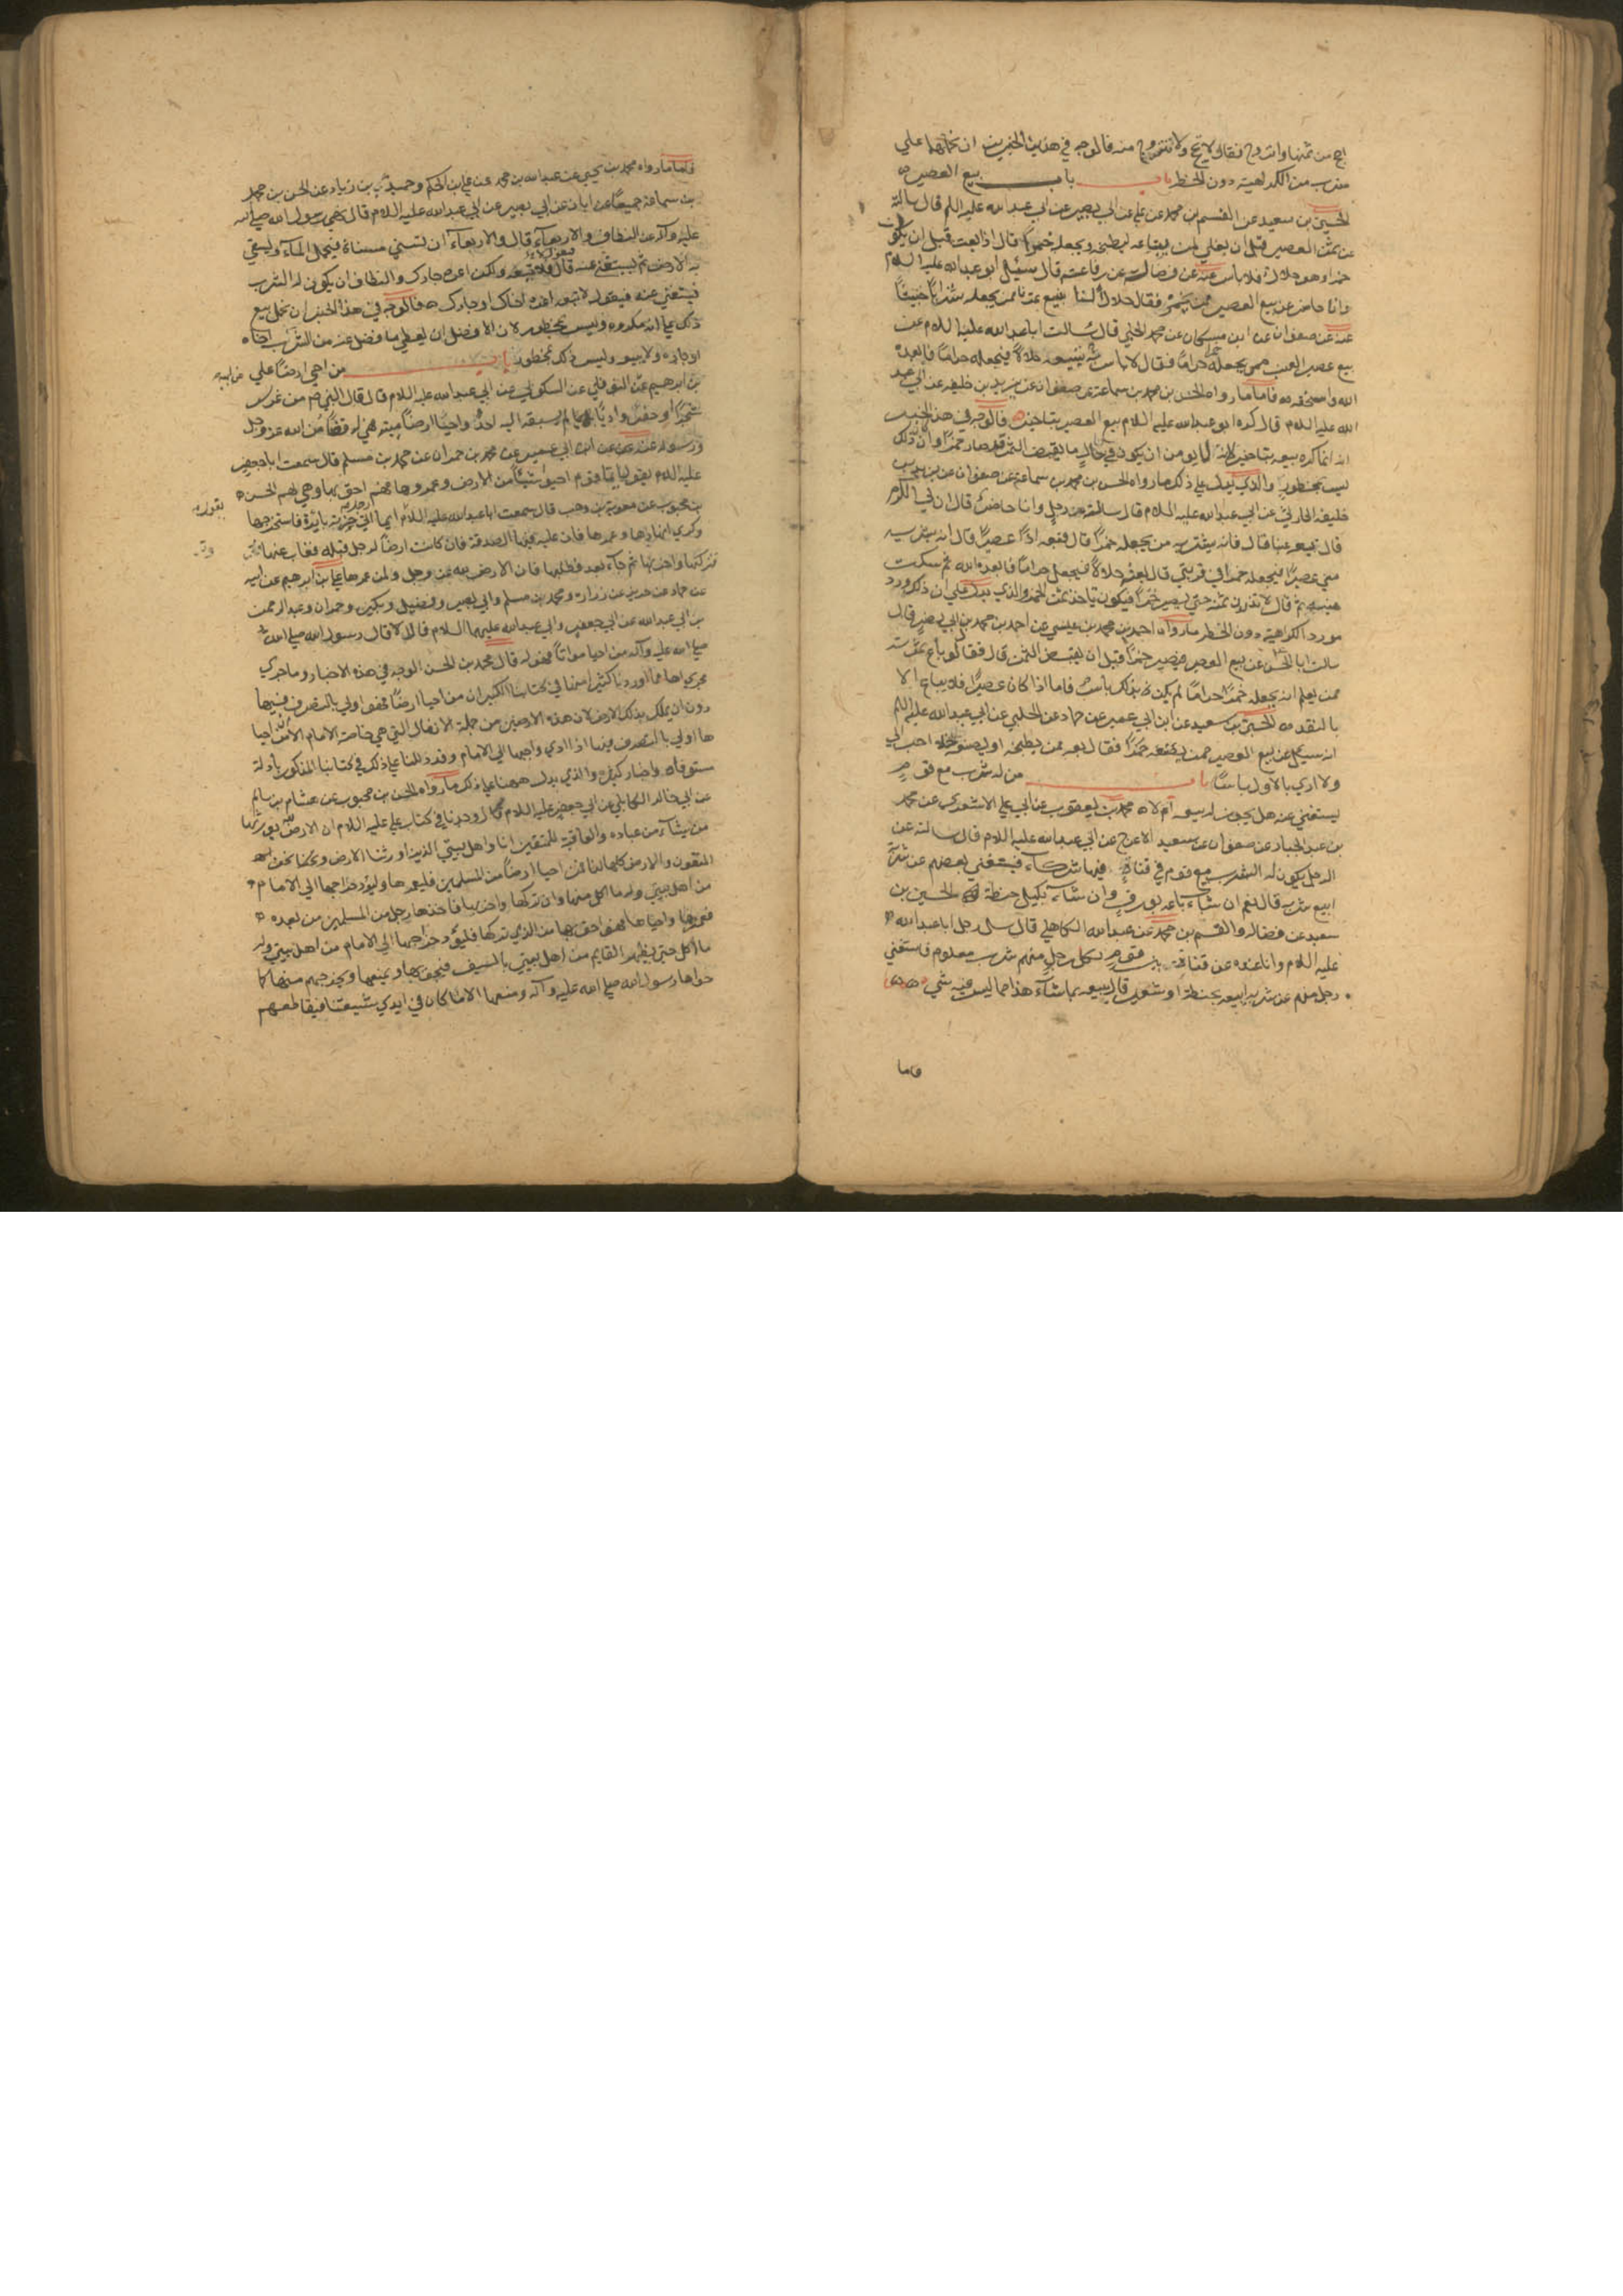 احج من ثمنها واتزوج فقال لا تحج ولا تتزوج منه فالوجه في هذين الخبرين ان نحملهما علي
ضرب من الكراهية دون الحظر باب بيع العصير
الحسين بن سعيد عن القسم بن محمد عن علي عن ابي بصير عن ابي عبد الله عليه السلم قال سالته
عن ثمن العصير قبل ان يغلي لمن يبتاعه ليطبخه ويجعله خمرا قال اذا بعته قبل ان يكون
خمرا وهو حلال فلا باس عنه عن فضالة عن رفاعة قال سئل ابو عبد الله عليه السلام
وانا حاضر عن بيع العصير ممن يخمره فقال حلال السنا نبيع تمرنا ممن يجعله شرابا خبيثا
عنه عن صفوان عن ابن مسكان عن محمد الحلبي قال سالت ابا عبد الله عليه السلام عن
بيع عصير العنب ممن يجعله حراما فقال لا باس به تبيعه حلالا فيجعله حراما فابعده
الله واسحقه فاما ما رواه الحسن بن محمد بن سماعة عن صفوان عن يزيد بن خليفه عن ابي عبد
الله عليه السلام قال كره ابو عبد الله عليه السلام بيع العصير بتاخير فالوجه في هذا الخبر
انه انما كره بيعه بتاخير لانه لا يؤمن ان يكون في حال ما يقبض الثمن قد صار خمرا وان ذلك
ليس بمحظور والذي يدل علي ذلك ما رواه الحسن بن محمد بن سماعة عن صفوان عن يزيد بن
خليفه الحارثي عن ابي عبد الله عليه السلام قال سالته رجل وانا حاضر قال ان لي الكرم
قال تبيعه عنبا قال فانه يشتريه من يجعله خمرا قال فبعه اذا عصيرا قال انه يشتريه
مني عصيرا فيجعله خمرا في قربتي قال بعته حلالا فيجعله حراما فابعده الله ثم سكت
هنيهة ثم قال لا تذرن ثمنه حتي يصير خمرا فيكون تاخذ ثمن الخمر والذي يدل علي ان ذلك ورد
مورد الكراهية دون الحظر ما رواه احمد بن محمد بن عيسي عن احمد بن محمد بن ابي نصر قال
سالت ابا الحسن عن بيع العصير فيصير خمرا قبل ان يقبض الثمن قال فقال لو باع ثمرته
ممن يعلم انه يجعله خمرا حراما لم يكن بذلك باس فاما اذا كان عصيرا فلا يباع الا
بالنقد الحسين بن سعيد عن ابن ابي عمير عن حماد عن الحلبي عن ابي عبد الله عليه السلم
انه سئل عن بيع العصير ممن يصنعه خمرا فقال بعه ممن يطبخه او يصنعه خلا احب الي
ولا اري بالاول باسا باب من له شرب مع قوم
يستغني عنه هل يجوز له بيعه ام لا محمد بن يعقوب عن ابي علي الاشعري عن محمد
بن عبد الجبار عن صفوان عن سعيد الاعرج عن ابي عبد الله عليه السلام قال سالته عن
الرجل يكون له الشرب مع قوم في قناة فيها شركاء فيستغني بعضهم عن شربه
ابيع شربه قال نعم ان شاء باعه بورق وان شاء بكيل حنطة الحسين بن
سعيد عن فضاله والقسم بن محمد عن عبد الله الكاهلي قال سال رجل ابا عبد الله
عليه السلام وانا عنده عن قناة بين قوم لكل رجل منهم شرب معلوم فاستغني
رجل منهم عن شربه ايبيعه بحنطة او شعير قال يبيعه بما شاء هذا مما ليس فيه شي
فاما
فاما ما رواه محمد بن يحيي عن عبد الله بن محمد عن علي بن الحكم وحميد بن زياد عن الحسن بن محمد
بن سماعة جميعا عن ابان عن ابي بصير عن ابي عبد الله عليه السلام قال نهي رسول الله صلي الله
عليه وآله عن النطاف والاربعاء قال والاربعاء ان تسني مسناة فيحمل الماء ويسقي
به الارض ثم يستغني عنه قال فلا تبعه ولكن اعره جارك والنطاف ان يكون له الشرب
فيستغني عنه فيقول لا تبعه اعره اخاك او جارك فالوجه في هذا الخبر ان نحمل بيع
ذلك علي انه مكروه وليس بمحظور لان الافضل ان يعطي ما فضل عنه من الشرب اخاه
او جاره ولا يبيعه وليس ذلك بمحظور باب من احيي ارضا علي
بن ابرهيم عن النوفلي عن السكوني عن ابي عبد الله عليه السلام قال قال النبي ص من غرس
شجرا او حفر واديا بديا لم يسبقه اليه احد واحيا ارضا ميته فهي له قضاء من الله عز وجل
ورسوله عنه عن ابن ابي عمير عن محمد بن حمران عن محمد بن مسلم قال سمعت ابا جعفر
عليه السلام يقول ايما قوم احيوا شيئا من الارض وعمروها فهم احق بها وهي لهم الحسن
بن محبوب عن معوية بن وهب قال سمعت ابا عبد الله عليه السلام ايما رجل اتي خربة بائرة فاستخرجها
وكري انهارها وعمرها فان عليه فيها الصدقة فان كانت ارضا لرجل قبله فغاب عنها
فتركها واخربها ثم جاء بعد فطلبها فان الارض لله عز وجل ولمن عمرها علي بن ابرهيم عن ابيه
عن حماد عن حريز عن زرارة ومحمد بن مسلم وابي بصير وفضيل وبكير وحمران وعبد الرحمن
بن ابي عبد الله عن ابي جعفر وابي عبد الله عليهما السلام قالا قال رسول الله صلي الله
صلي الله عليه وآله من احيا مواتا فهو له قال محمد بن الحسن الوجه في هذه الاخبار وما جري
مجراها مما اوردنا كثيرا منها في كتابنا الكبير ان من احيا ارضا فهو اولي بالتصرف فيها
دون ان يملك بذلك الارض لان هذه الارضين من جملة الانفال التي هي خاصة الامام الا ان من احيا
ها اولي بالتصرف فيها اذا ادي واجبها الي الامام وقد دللنا علي ذلك في كتابنا المذكور بادلة
مستوفاه واخبار كثيرة والذي يدل ههنا علي ذلك ما رواه الحسن بن محبوب عن هشام بن سالم
عن ابي خالد الكابلي عن ابي جعفر عليه السلام قال وجدنا في كتاب علي عليه السلام ان الارض لله يورثها
من يشاء من عباده والعاقبة للمتقين انا واهل بيتي الذين اورثنا الارض ونحن
المتقون والارض كلها لنا فمن احيا ارضا من المسلمين فليعمرها وليؤد خراجها الي الامام
من اهل بيتي وله ما اكل منها وان تركها واخربها فاخذها رجل من المسلمين من بعده
فعمرها واحياها فهو احق بها من الذي تركها فليؤد خراجها الي الامام من اهل بيتي وله
ما اكل حتي يظهر القايم من اهل بيتي بالسيف فيحويها ويمنعها ويخرجهم منها كما
حواها رسول الله صلي الله عليه وآله ومنعها الا ما كان في ايدي شيعتنا فيقاطعهم